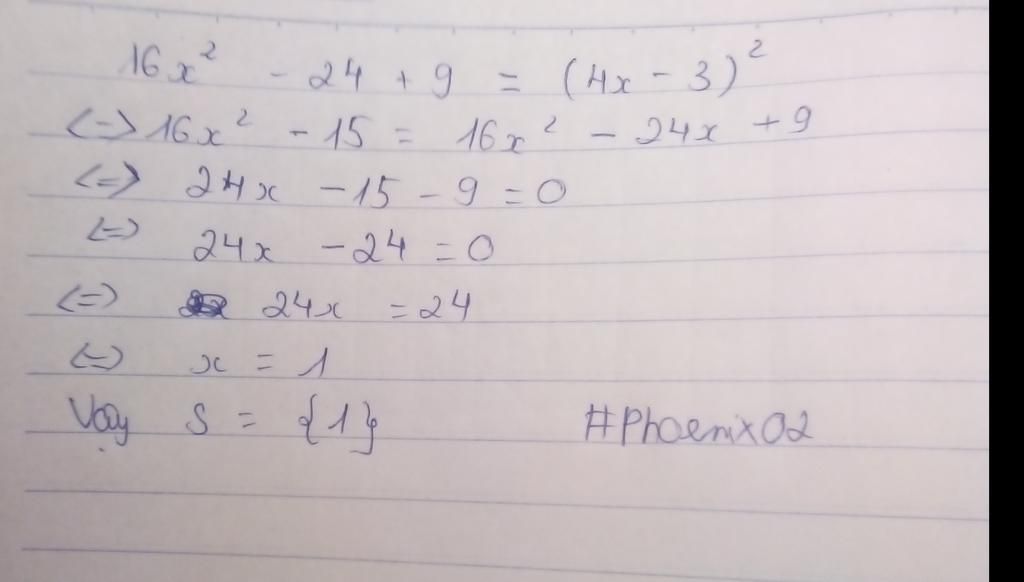 16x² - 24 + 9 = (4x - 3)²
<=> 16x² - 15 = 16x² - 24x + 9
<=> 24x - 15 - 9 = 0
<=> 24x - 24 = 0
<=> 24x = 24
<=> x = 1
Vậy S = {1} #Phoenix02